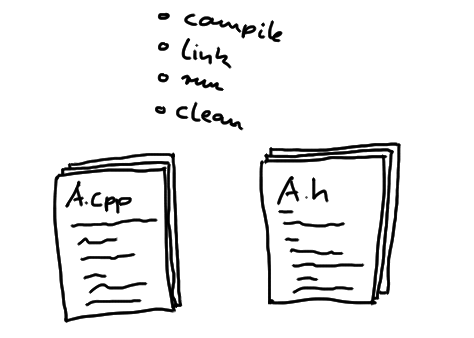 • compile
• link
• run
• clean
A.cpp
A.h